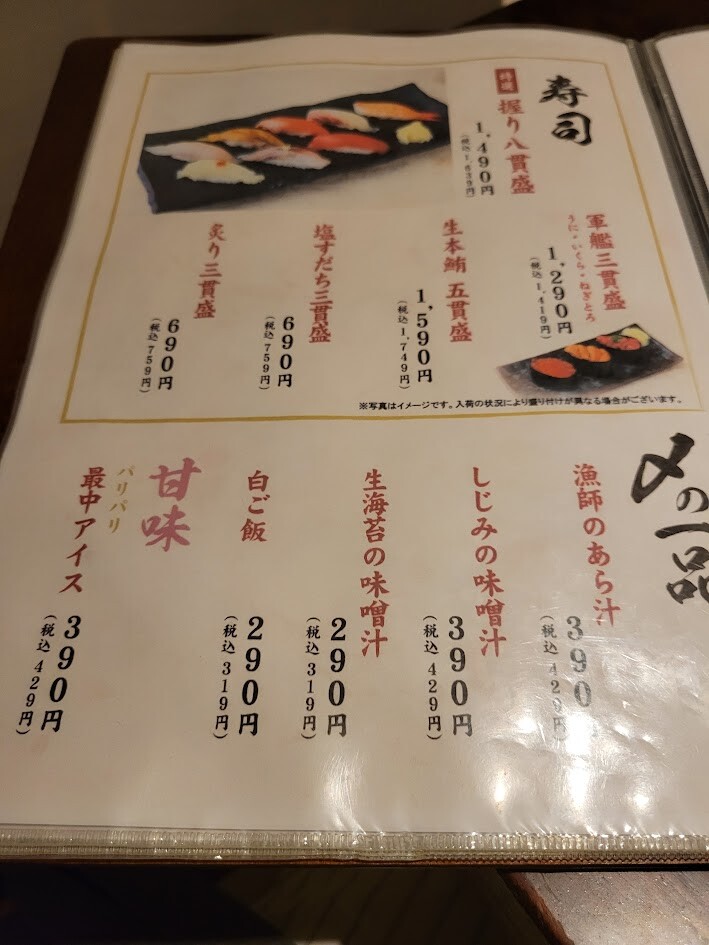 寿司
特選
握り八貫盛
1,490円
(税込1,639円)
軍艦三貫盛
うに・いくら・ねぎとろ
1,290円
(税込1,419円)
生本鮪 五貫盛
1,590円
(税込1,749円)
塩すだち三貫盛
690円
(税込759円)
炙り三貫盛
690円
(税込759円)
※写真はイメージです。入荷の状況により盛り付けが異なる場合がございます。
〆の一品
漁師のあら汁
390円
(税込429円)
しじみの味噌汁
390円
(税込429円)
生海苔の味噌汁
290円
(税込319円)
白ご飯
290円
(税込319円)
甘味
パリパリ
最中アイス
390円
(税込429円)